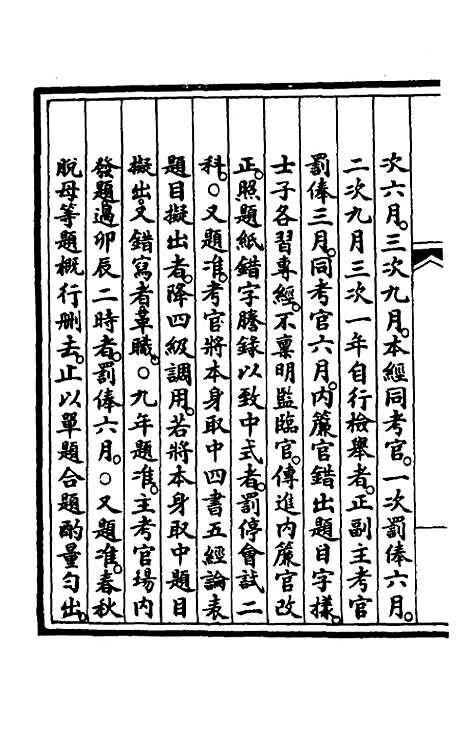 次六月。三次九月。本經同考官。一次罰俸六月。
二次九月三次一年自行檢舉者。正副主考官
罰俸三月。同考官六月。內簾官錯出題目字樣。
士子各習專經。不稟明監臨官。傳進內簾官改
正。照題紙錯字謄錄以致中式者。罰停會試二
科。○又題准。考官將本身取中四書五經論表
題目擬出者。降四級調用。若將本身取中題目
擬出。又錯寫者革職。○九年題准。主考官場內
發題。過卯辰二時者。罰俸六月。○又題准。春秋
脫母等題概行刪去。止以單題合題酌量勻出。